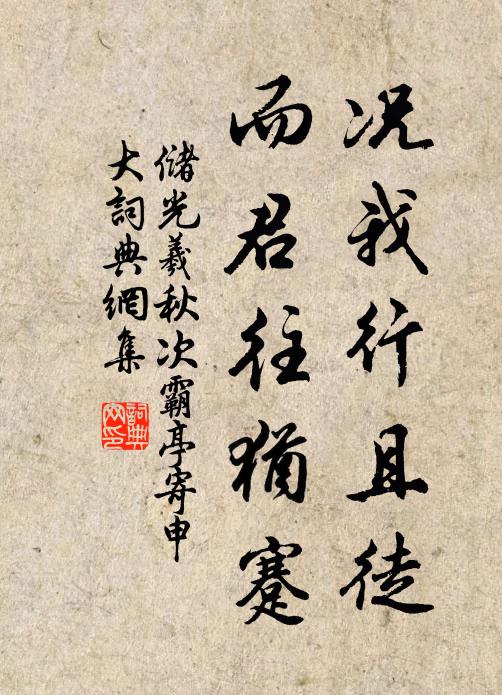 况我行且徒
而君往犹蹇
儲光羲秋次霸亭寄申
大詞典網集
詞典网印